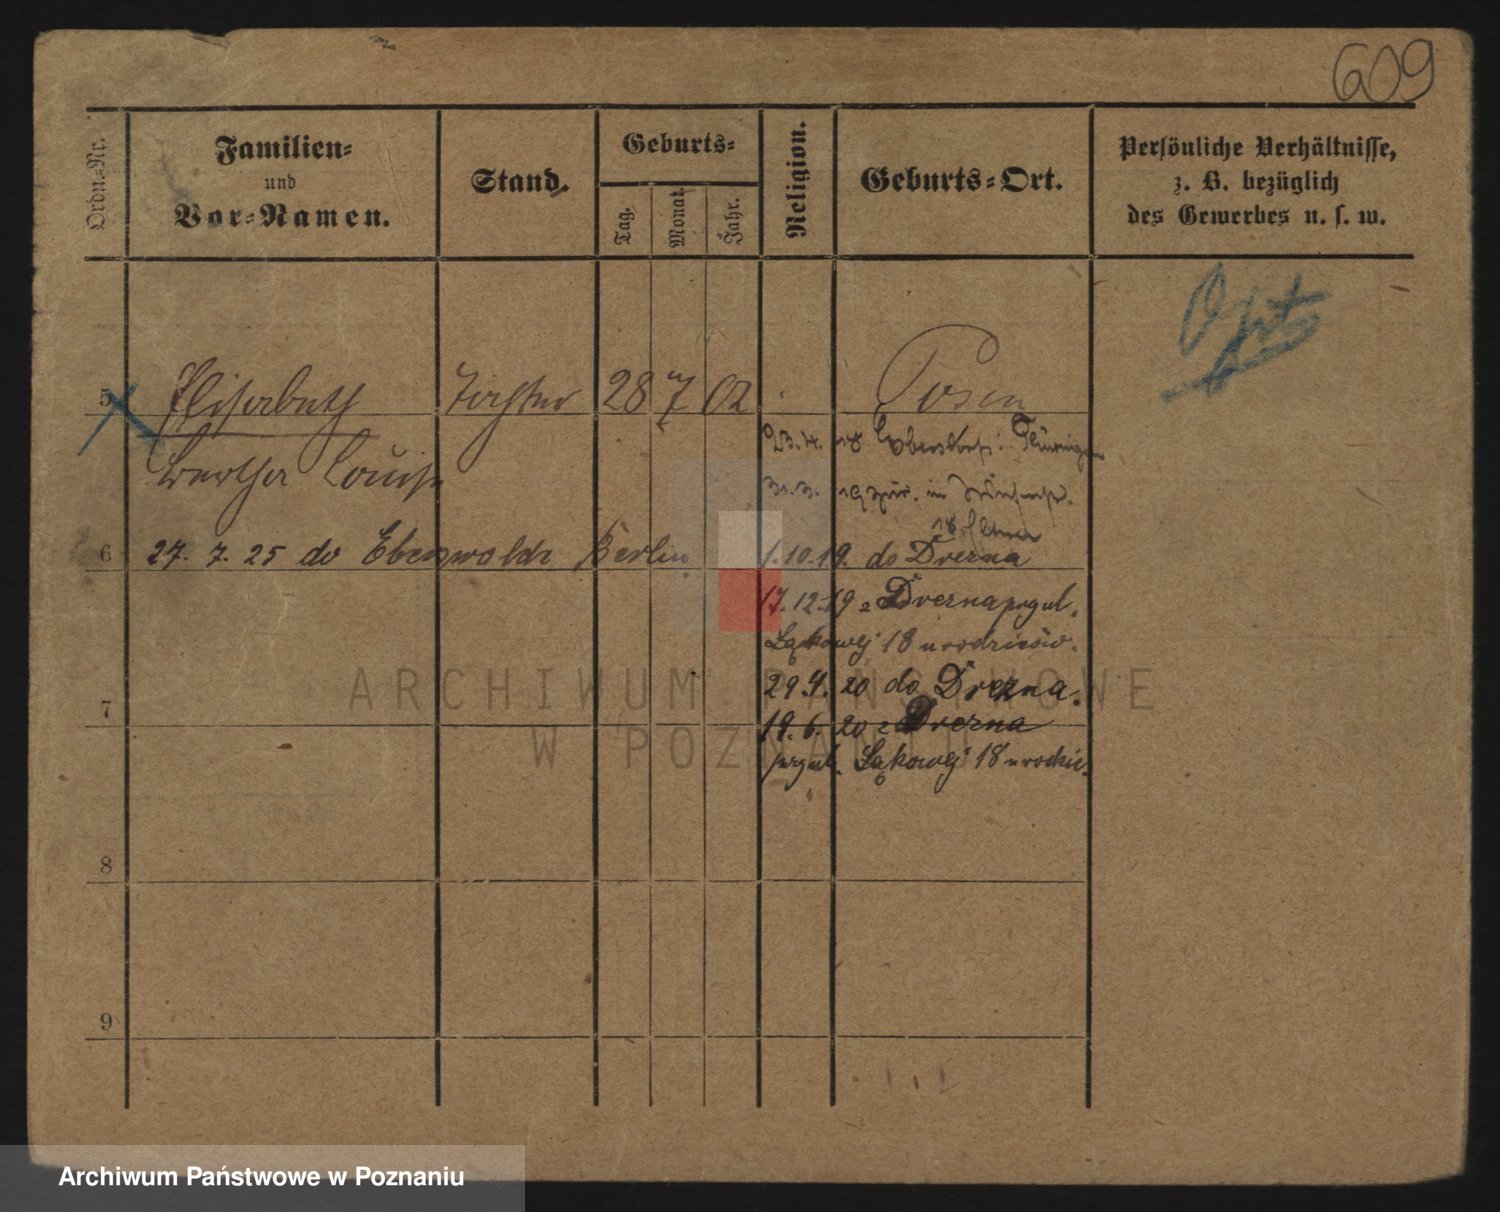 609
Ordn.-Nr.
Familien-
und
Vor-Namen.
Stand.
Geburts-
Tag.
Monat.
Jahr.
Religion.
Geburts-Ort.
Persönliche Verhältnisse,
z. B. bezüglich
des Gewerbes u. s. w.
Opt
5 Elisabeth Tochter 28 7 02 Posen
23.4. 18 Ebersdorf i. Thüringen
Louise
31.3. 19 zur. in
18
6 27. 7. 25 do Eberswalde Berlin 1.10.19. do Drezna
17.12.19 z Drezna przy ul.
Łąkowej 18 u rodziców.
29.4. 20 do Drezna.
7
19. 6. 20 z Drezna
przy ul. Łąkowej 18 u rodzic.
8
9
ARCHIWUM PAŃSTWOWE
W POZNANIU
Archiwum Państwowe w Poznaniu